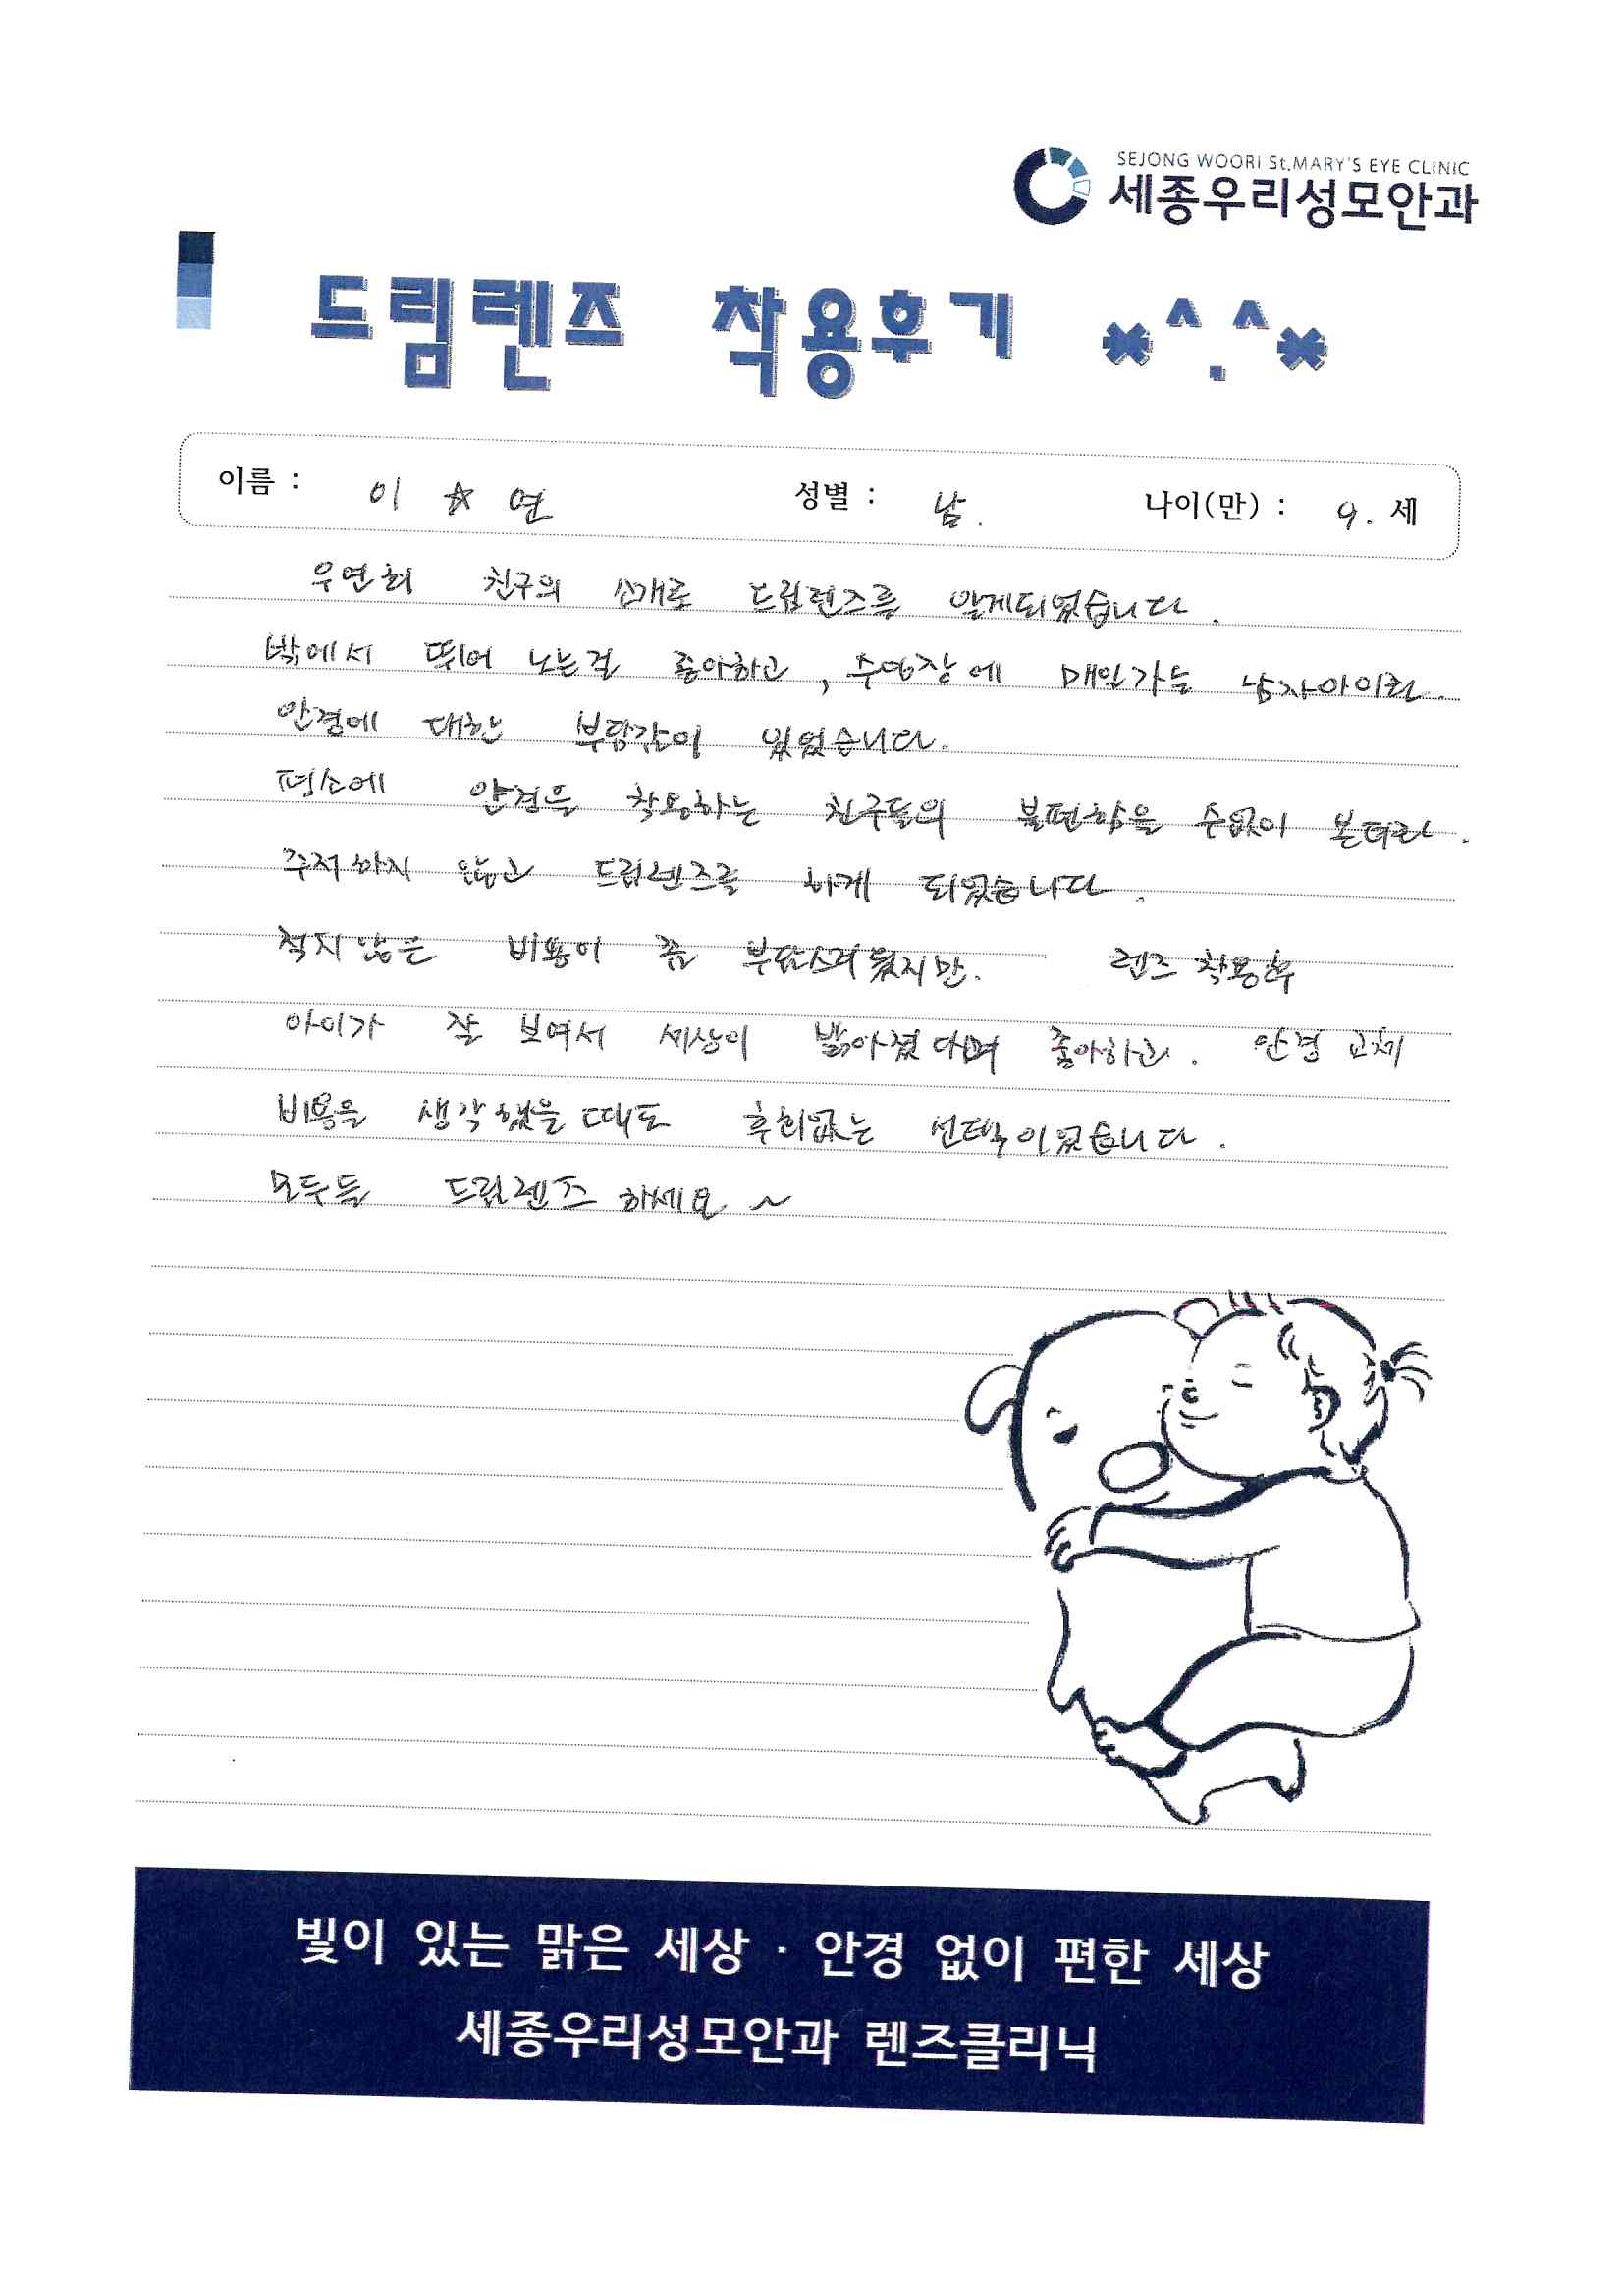 SEJONG WOORI St.MARY'S EYE CLINIC
세종우리성모안과
드림렌즈 착용후기 *^.^*
이름 : 이 ☆ 연 성별 : 남. 나이(만) : 9. 세
우연희 친구의 소개로 드림렌즈를 알게되었습니다.
밖에서 뛰어 노는걸 좋아하고, 수영장에 매일가는 남자아이라.
안경에 대한 부담감이 있었습니다.
평소에 안경을 착용하는 친구들의 불편함을 수없이 본터라.
주저하지 않고 드림렌즈를 하게 되었습니다.
적지않은 비용이 좀 부담스러웠지만. 렌즈 착용후
아이가 잘 보여서 세상이 밝아졌다며 좋아하고. 안경 교체
비용을 생각했을때도 후회없는 선택이었습니다.
모두들 드림렌즈 하세요~
빛이 있는 맑은 세상 · 안경 없이 편한 세상
세종우리성모안과 렌즈클리닉